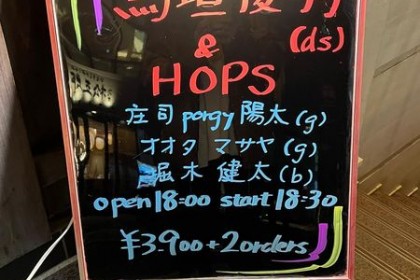 (ds)
&
HOPS
庄司 porgy 陽太 (g)
オオタ マサヤ (g)
堀木 健太 (b)
open 18:00 start 18:30
¥3,900+2orders